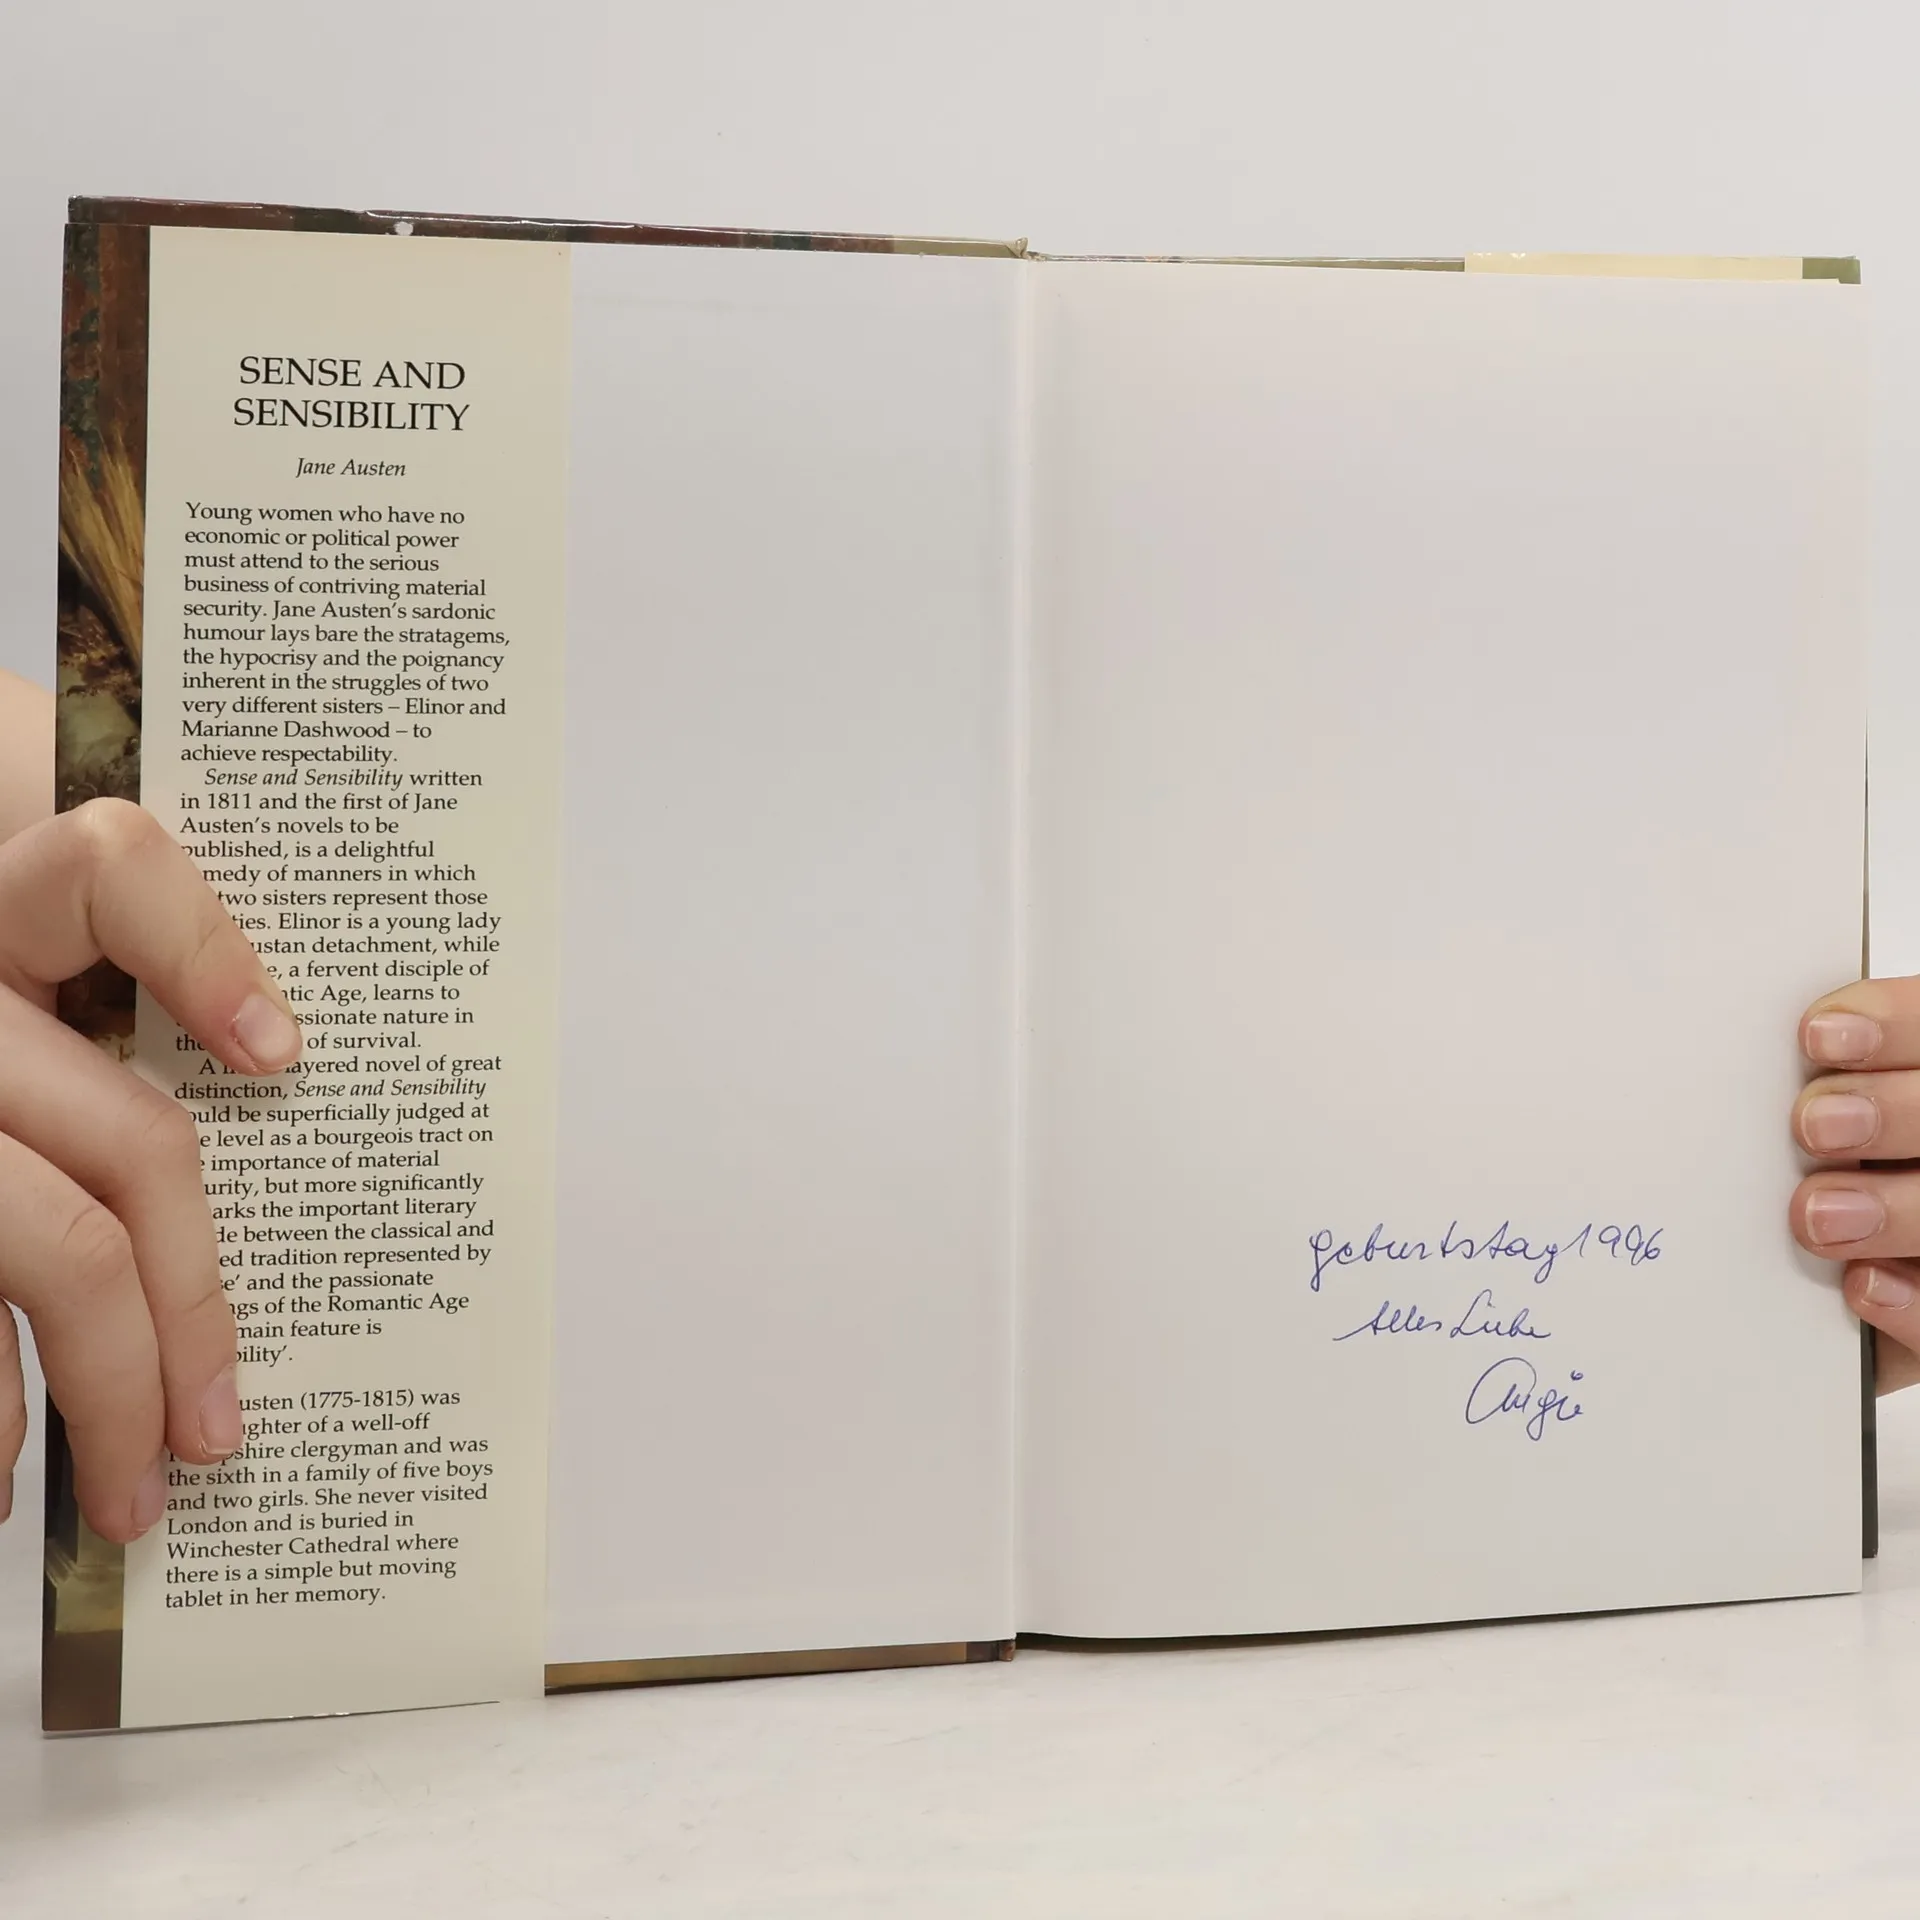 SENSE AND
SENSIBILITY
Jane Austen
Young women who have no
economic or political power
must attend to the serious
business of contriving material
security. Jane Austen's sardonic
humour lays bare the stratagems,
the hypocrisy and the poignancy
inherent in the struggles of two
very different sisters – Elinor and
Marianne Dashwood – to
achieve respectability.
Sense and Sensibility written
in 1811 and the first of Jane
Austen's novels to be
published, is a delightful
medy of manners in which
two sisters represent those
ties. Elinor is a young lady
ustan detachment, while
e, a fervent disciple of
ntic Age, learns to
ssionate nature in
the of survival.
A layered novel of great
distinction, Sense and Sensibility
ould be superficially judged at
e level as a bourgeois tract on
importance of material
urity, but more significantly
arks the important literary
de between the classical and
ed tradition represented by
se' and the passionate
ngs of the Romantic Age
main feature is
bility'.
usten (1775-1815) was
ughter of a well-off
pshire clergyman and was
the sixth in a family of five boys
and two girls. She never visited
London and is buried in
Winchester Cathedral where
there is a simple but moving
tablet in her memory.
geburtstag 1996
Alles Liebe
Angie